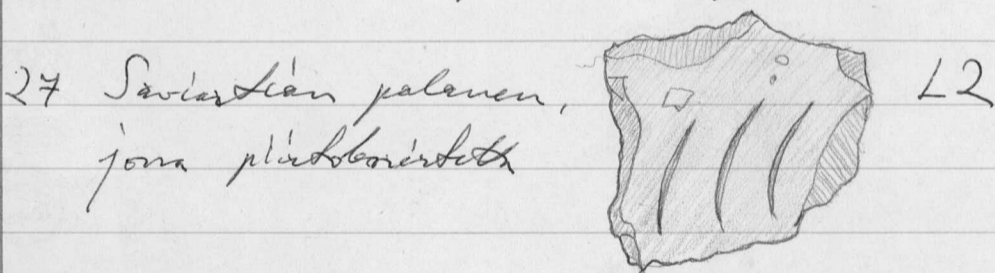 27 Saviastian palanen, L2
jossa piirtokoristetta